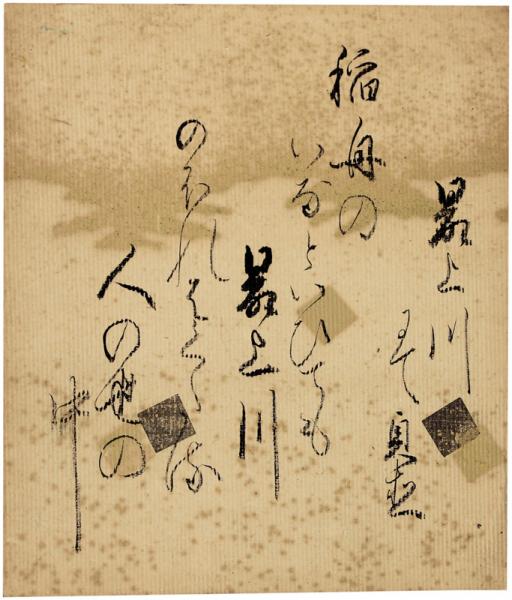 最上川
にて
稲舟の
いなといひても
最上川
のほれはくたる
人の世の
中